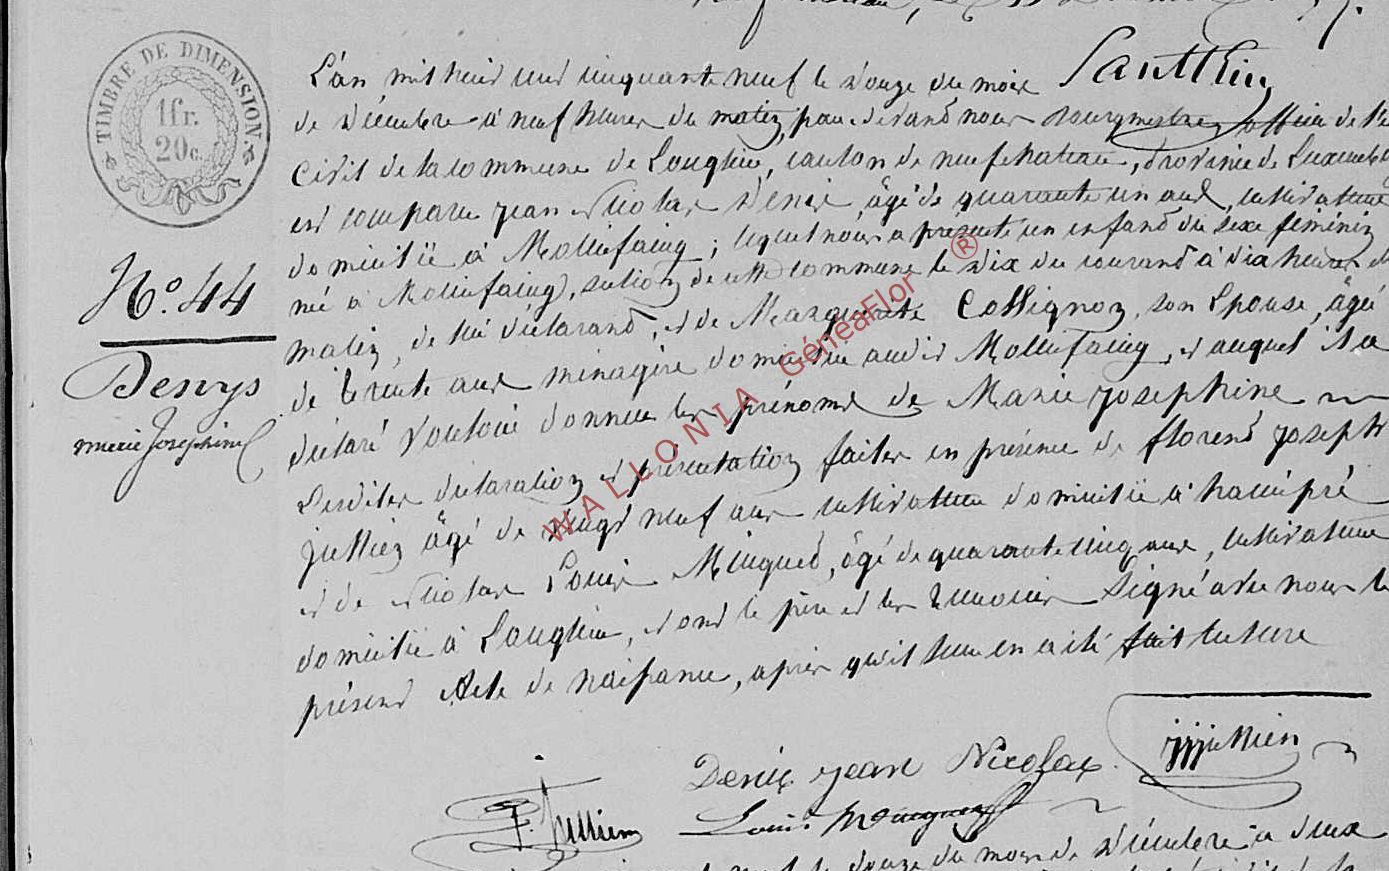 TIMBRE DE DIMENSION.
1fr.
20c.
N.° 44
Denys
marie Josephine
L'an mil huit cent cinquante neuf le Douze du mois
de Décembre à neuf heures du matin, par devant nous Bourgmestre, officier de l'
Civil de la commune de Longlier, canton de neufchateau, province de Luxemb
est comparu jean Nicolas Denis, âgé de quarante un ans, cultivateur
domicilié à Molinfaing ; lequel nous a présenté un enfant du sexe féminin
né à Molinfaing, section de cette commune le Dix du courant à dix heures d
matin, de lui déclarant, et de Marguerite Collignon, son Epouse, âgée
de trente ans ménagère domiciliée audit Molinfaing, et auquel il a
déclaré vouloir donner les prénoms de Marie Josephine
Lesdites déclaration et présentation faites en présence de florent Joseph
Jullien âgé de vingt neuf ans cultivateur domicilié à hamipré
et de Nicolas Louis Minguet, âgé de quarante cinq ans, cultivateur
domicilié à Longlier, et ont le père et les témoins Signé avec nous le
présent Acte de naissance, après qu'il leur en a été fait lecture
Denis jean Nicolas
jjjullien
F. Jullien
Louis
du mois de Décembre à deux
WALLONIA GénéaFlor ®